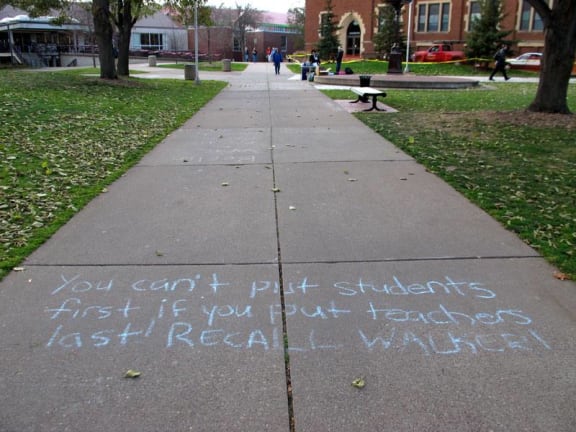 You can't put students
first if you put teachers
last! RECALL WALKER!